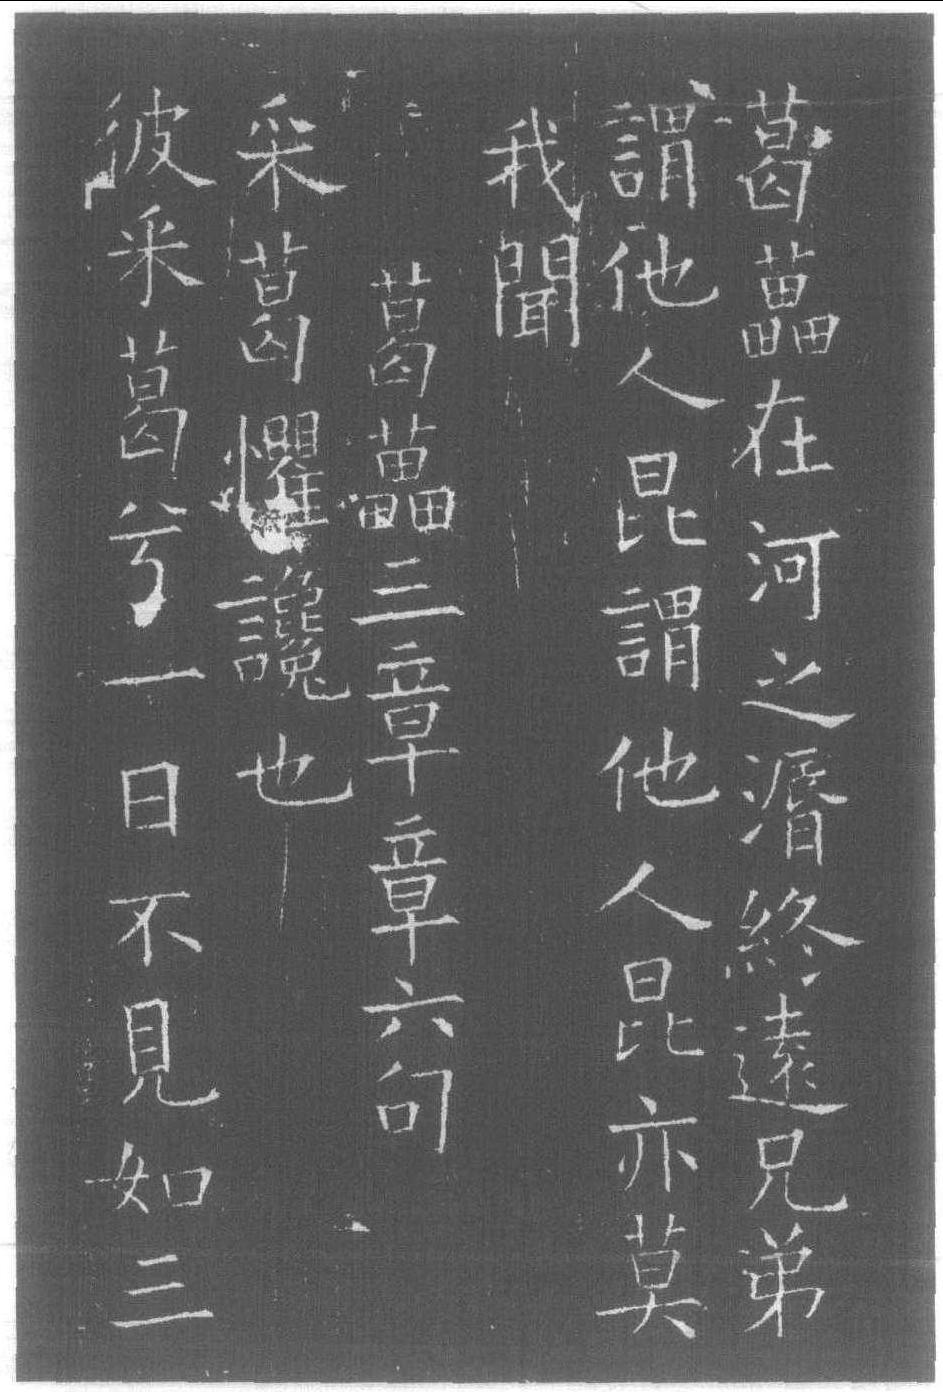 葛藟在河之漘終遠兄弟
謂他人昆謂他人昆亦莫
我聞
葛藟三章章六句
采葛懼讒也
彼采葛兮一日不見如三